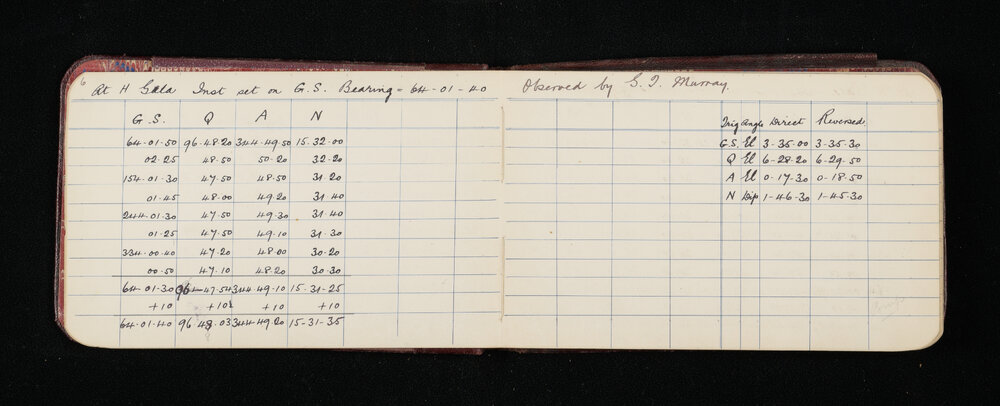 6
At H Gala Inst set on G.S. Bearing - 64-01-40
G.S. Q A N
64.01.50 96.48.20 344.49.50 15.32.00
02.25 48.50 50.20 32.20
154.01.30 47.50 48.50 31.20
01.45 48.00 49.20 31.40
244.01.30 47.50 49.30 31.40
01.25 47.50 49.10 31.30
334.00.40 47.20 48.00 30.20
00.50 47.10 48.20 30.30
64.01.30 96-47-54 344.49.10 15.31-25
+10 +10 +10 +10
64.01.40 96.48.03 344.49.20 15-31-35
Observed by G. T. Murray.
Trig Angle Direct Reversed
G.S. El 3-35-00 3-35-30
Q El 6-28-20 6-29-50
A El 0-17-30 0-18-50
N Dip 1-46-30 1-45-30